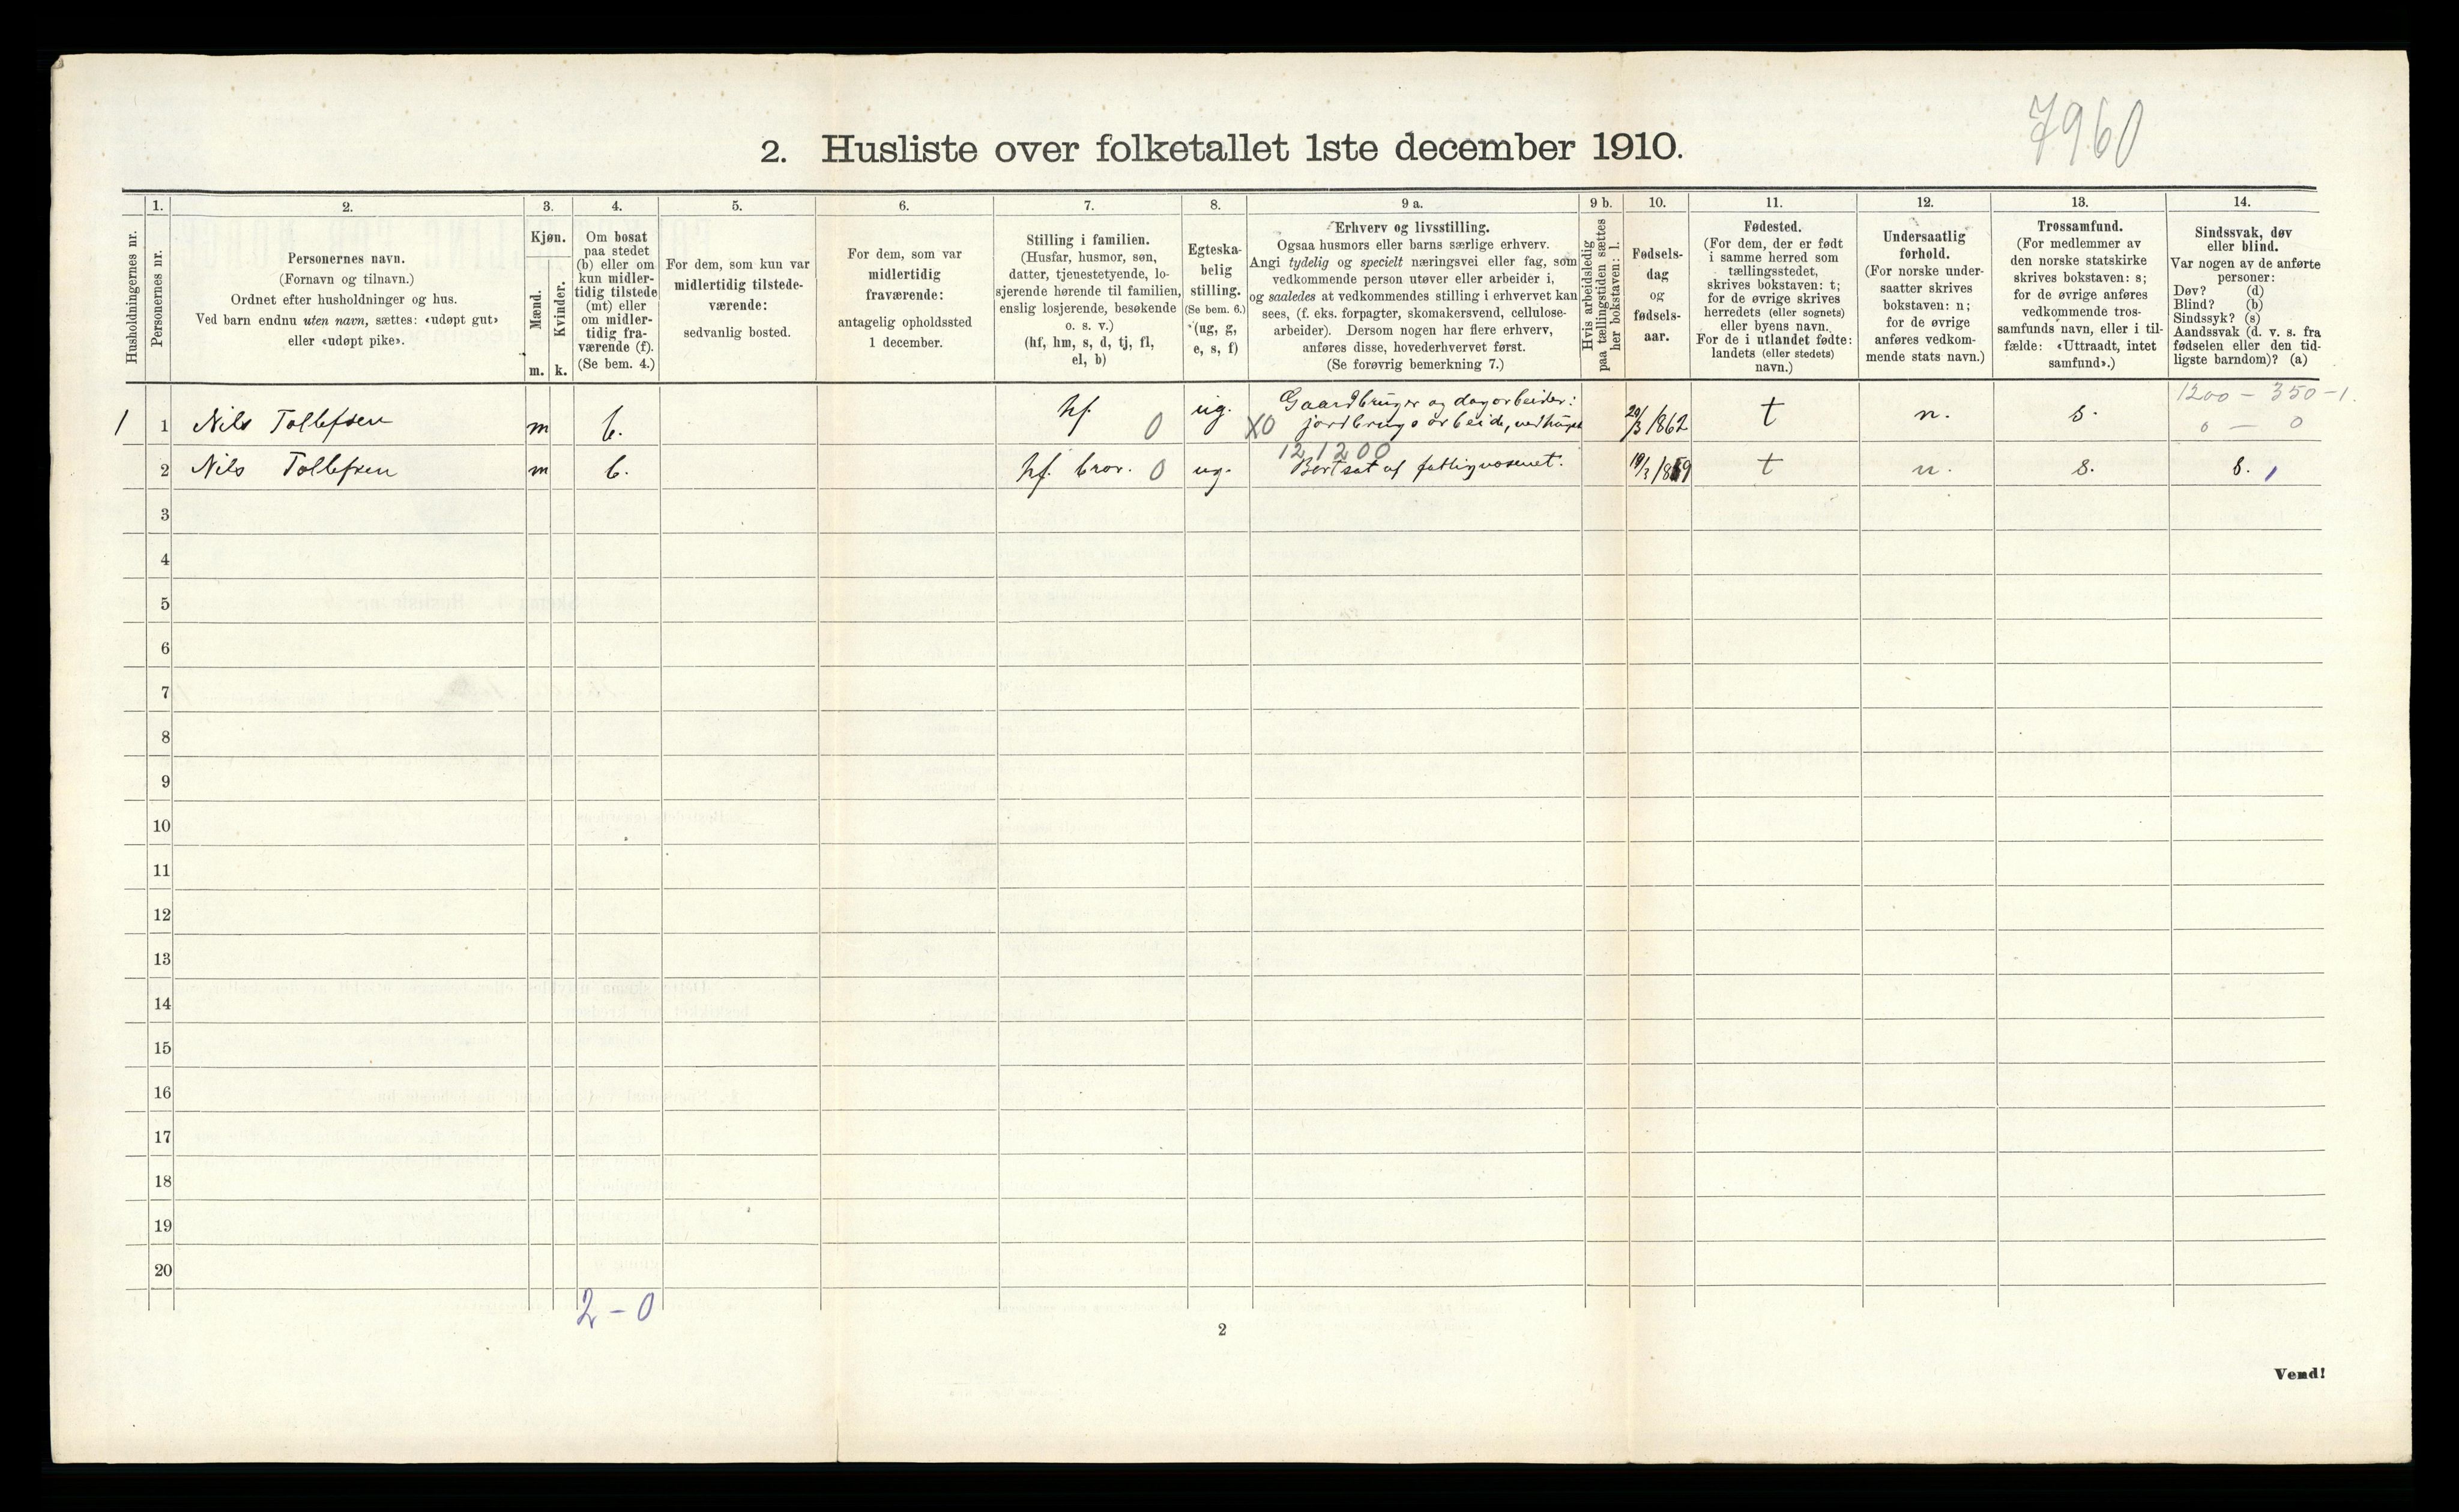 7960
2. Husliste over folketallet 1ste december 1910.
Husholdningernes nr.
1.
Personernes nr.
2.
Personernes navn.
(Fornavn og tilnavn.)
Ordnet efter husholdninger og hus.
Ved barn endnu uten navn, sættes: «udøpt gut»
eller «udøpt pike».
3.
Kjøn.
Mænd.
Kvinder.
m. k.
4.
Om bosat
paa stedet
(b) eller om
kun midler-
tidig tilstede
(mt) eller
om midler-
tidig fra-
værende (f).
(Se bem. 4.)
5.
For dem, som kun var
midlertidig tilstede-
værende:
sedvanlig bosted.
6.
For dem, som var
midlertidig
fraværende:
antagelig opholdssted
1 december.
7.
Stilling i familien.
(Husfar, husmor, søn,
datter, tjenestetyende, lo-
sjerende hørende til familien,
enslig losjerende, besøkende
o. s. v.)
(hf, hm, s, d, tj, fl,
el, b)
8.
Egteska-
belig
stilling.
(Se bem. 6.)
(ug, g,
e, s, f)
9 a.
Erhverv og livsstilling.
Ogsaa husmors eller barns særlige erhverv.
Angi tydelig og specielt næringsvei eller fag, som
vedkommende person utøver eller arbeider i,
og saaledes at vedkommendes stilling i erhvervet kan
sees, (f. eks. forpagter, skomakersvend, cellulose-
arbeider). Dersom nogen har flere erhverv,
anføres disse, hovederhvervet først.
(Se forøvrig bemerkning 7.)
9 b.
Hvis arbeidsledig
paa tællingstiden sættes
her bokstaven: l.
10.
Fødsels-
dag
og
fødsels-
aar.
11.
Fødested.
(For dem, der er født
i samme herred som
tællingsstedet,
skrives bokstaven: t;
for de øvrige skrives
herredets (eller sognets)
eller byens navn.
For de i utlandet fødte:
landets (eller stedets)
navn.)
12.
Undersaatlig
forhold.
(For norske under-
saatter skrives
bokstaven: n;
for de øvrige
anføres vedkom-
mende stats navn.)
13.
Trossamfund.
(For medlemmer av
den norske statskirke
skrives bokstaven: s;
for de øvrige anføres
vedkommende tros-
samfunds navn, eller i til-
fælde: «Uttraadt, intet
samfund».)
14.
Sindssvak, døv
eller blind.
Var nogen av de anførte
personer:
Døv? (d)
Blind? (b)
Sindssyk? (s)
Aandssvak (d. v. s. fra
fødselen eller den tid-
ligste barndom)? (a)
1200 - 350 - 1.
Gaardbruger og dagarbeider:
1 1 Nils Tollefsen m b. hf. 0 ug. X0 jordbrugsarbeide, 1862 t n. s. 0 - 0
12,1200
2 Nils Tollefsen m b. hf. bror. 0 ug. Bortsat af fattigvæsenet. t n. s. s. 1
3
4
5
6
7
8
9
10
11
12
13
14
15
16
17
18
19
20
2 - 0
2
Vend!